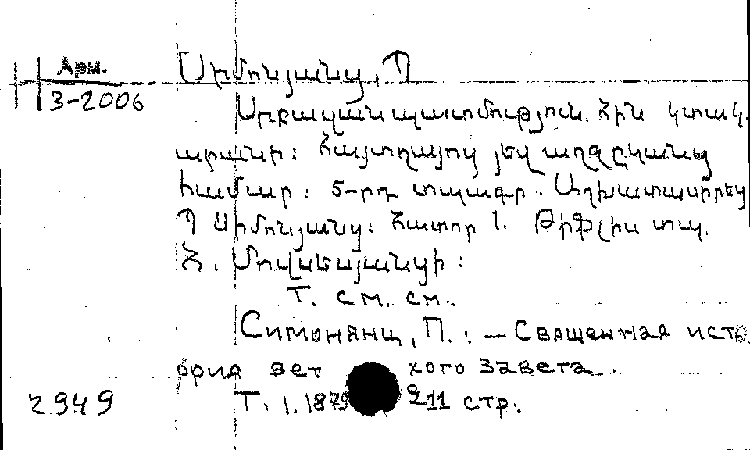 Арм.
3-2006
Սիմոնյանց, Պ
Սրբազան պատմություն Հին կտակ-
արանի։ Հայտղայոց յեվ աղջըկանց
համար։ 5-րդ տպագր. Աշխատասիրեց
Պ Սիմոնյանց։ Հատոր 1. Թիֆլիս տպ.
Հ. Մովսեսյանցի։
Т. см. см.
Симонянц, П. : — Священная исто
ория вет хого завета.
2949 Т. 1. 1879 211 стр.